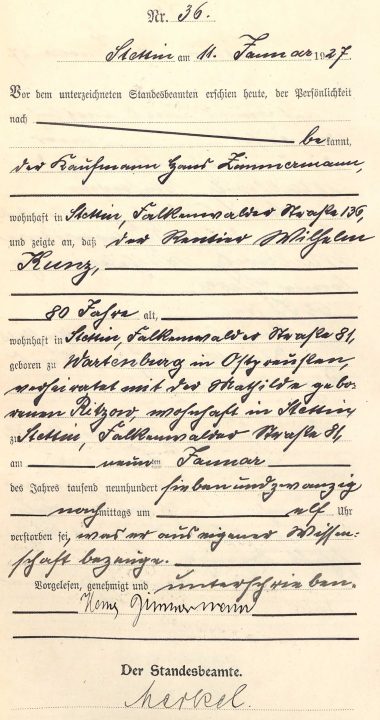 Nr. 36.
Stettin am 11. Januar 1927
Vor dem unterzeichneten Standesbeamten erschien heute, der Persönlichkeit
nach
bekannt,
der Kaufmann Hans Zimmermann,
wohnhaft in Stettin, Falkenwalder Straße 136,
und zeigte an, daß der Rentier Wilhelm
Kunz,
80 Jahre alt,
wohnhaft in Stettin, Falkenwalder Straße 81,
geboren zu Wartenburg in Ostpreußen,
verheiratet mit der Mathilde gebo-
renen Ritzow, wohnhaft in Stettin,
zu Stettin, Falkenwalder Straße 81,
am neunten Januar
des Jahres tausend neunhundert siebenundzwanzig
nachmittags um elf Uhr
verstorben sei, was er aus eigener Wissen-
schaft bezeuge.
Vorgelesen, genehmigt und unterschrieben.
Hans Zimmermann
Der Standesbeamte.
Merkel.